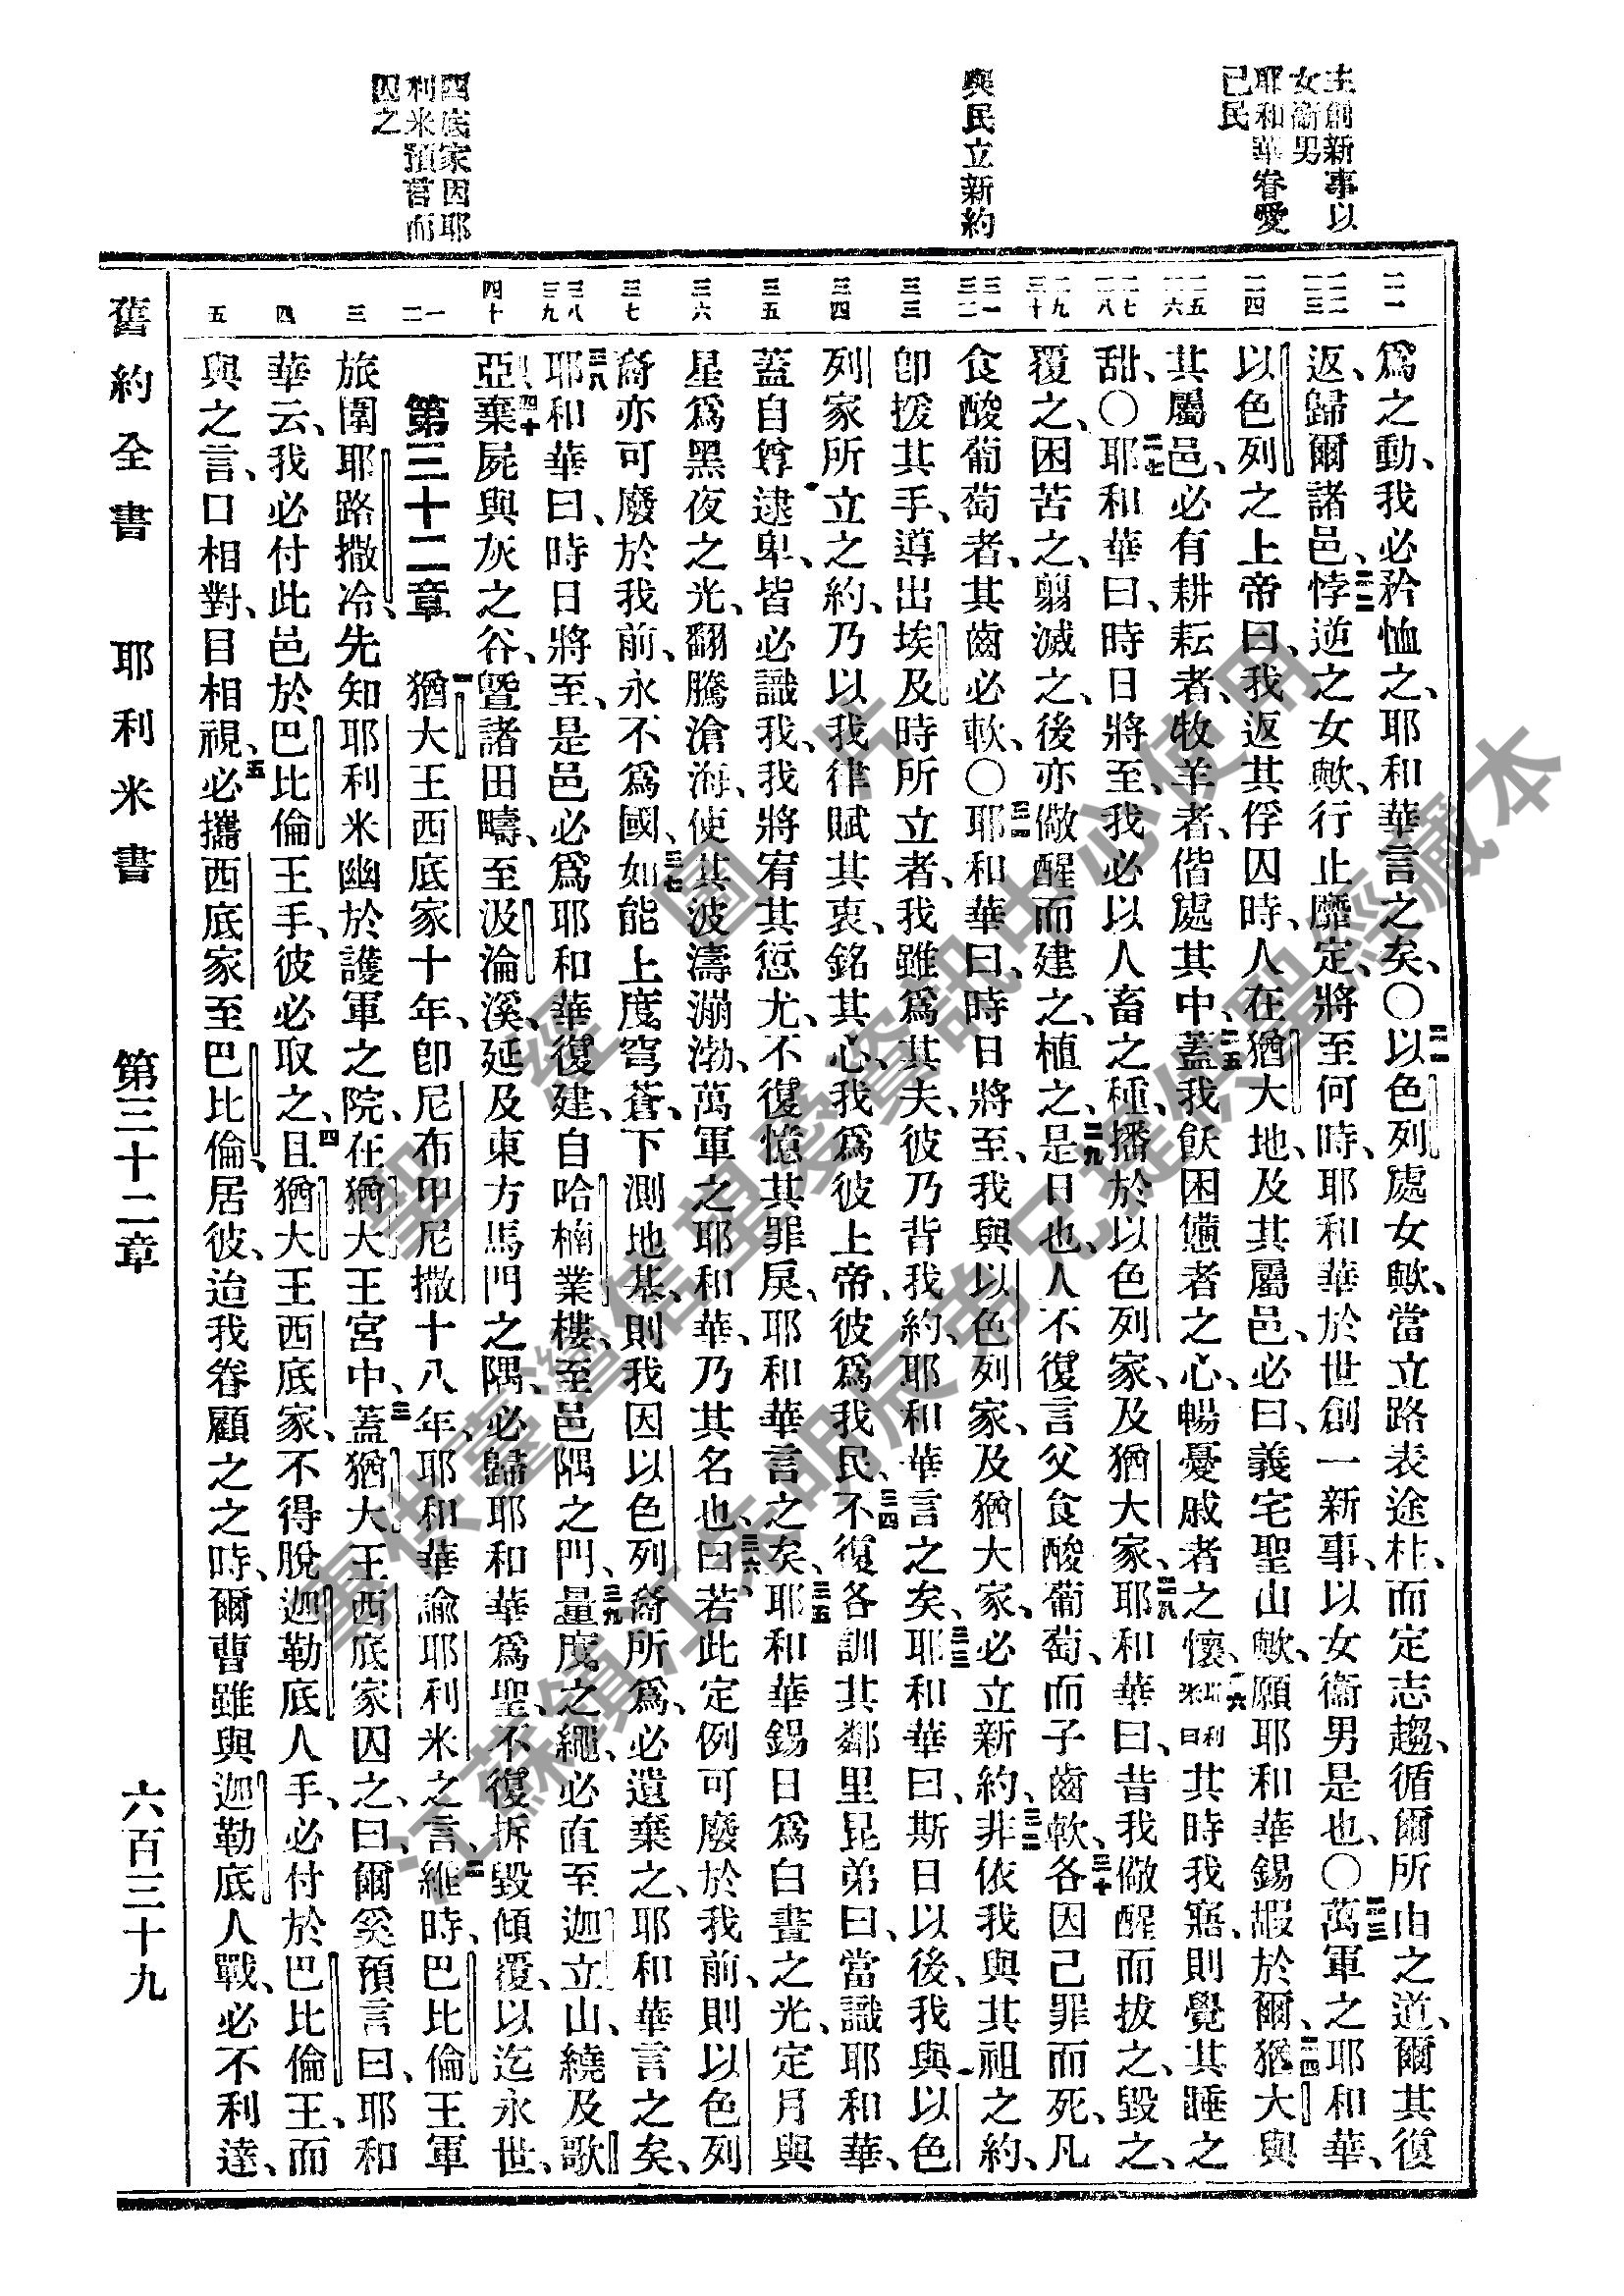 主創新事以
女衞男
耶和華眷愛
己民
與民立新約
西底家因耶
利米預言而
囚之
二一
二二 二三
二四
二五 二六
二七 二八
二九 三十
三一 三二
三三
三四
三五
三六
三七
三八 三九
四十
一 二
三
四
五
爲之動、我必矜恤之、耶和華言之矣、〇二一以色列處女歟、當立路表途柱、而定志趨、循爾所由之道、爾其復
返、歸爾諸邑、二二悖逆之女歟、行止靡定、將至何時、耶和華於世創一新事、以女衞男是也、〇二三萬軍之耶和華、
以色列之上帝曰、我返其俘囚時、人在猶大地、及其屬邑、必曰、義宅聖山歟、願耶和華錫嘏於爾、二四猶大與
其屬邑、必有耕耘者、牧羊者、偕處其中、二五蓋我飫困憊者之心、暢憂戚者之懷、二六耶利米曰其時我寤、則覺其睡之
甜、〇二七耶和華曰、時日將至、我必以人畜之種、播於以色列家、及猶大家、二八耶和華曰、昔我儆醒而拔之、毀之、
覆之、困苦之、翦滅之、後亦儆醒而建之、植之、二九是日也、人不復言父食酸葡萄、而子齒軟、三十各因己罪而死、凡
食酸葡萄者、其齒必軟、〇三一耶和華曰、時日將至、我與以色列家、及猶大家、必立新約、三二非依我與其祖之約、
卽援其手、導出埃及時所立者、我雖爲其夫、彼乃背我約、耶和華言之矣、三三耶和華曰、斯日以後、我與以色
列家所立之約、乃以我律賦其衷、銘其心、我爲彼上帝、彼爲我民、三四不復各訓其鄰里昆弟曰、當識耶和華、
蓋自尊逮卑、皆必識我、我將宥其愆尤、不復憶其罪戾、耶和華言之矣、三五耶和華錫日爲白晝之光、定月與
星爲黑夜之光、翻騰滄海、使其波濤漰渤、萬軍之耶和華、乃其名也、三六曰、若此定例可廢於我前、則以色列
裔亦可廢於我前、永不爲國、三七如能上度穹蒼、下測地基、則我因以色列裔所爲、必遺棄之、耶和華言之矣、
三八耶和華曰、時日將至、是邑必爲耶和華復建、自哈楠業樓、至邑隅之門、三九量度之繩、必直至迦立山、繞及歌
亞、四十棄屍與灰之谷、曁諸田疇、至汲淪溪、延及東方馬門之隅、必歸耶和華爲聖、不復拆毀傾覆、以迄永世、
第三十二章 一猶大王西底家十年、卽尼布甲尼撒十八年、耶和華諭耶利米之言、二維時、巴比倫王軍
旅圍耶路撒冷、先知耶利米幽於護軍之院、在猶大王宮中、三蓋猶大王西底家囚之、曰、爾奚預言曰、耶和
華云、我必付此邑於巴比倫王手、彼必取之、四且猶大王西底家、不得脫迦勒底人手、必付於巴比倫王、而
與之言、口相對、目相視、五必攜西底家至巴比倫、居彼、迨我眷顧之之時、爾曹雖與迦勒底人戰、必不利達、
舊約全書 耶利米書 第三十二章 六百三十九
聖經圖片
專供臺灣信望愛資訊中心使用
江蘇鎮江朱明辰弟兄提供聖經藏本